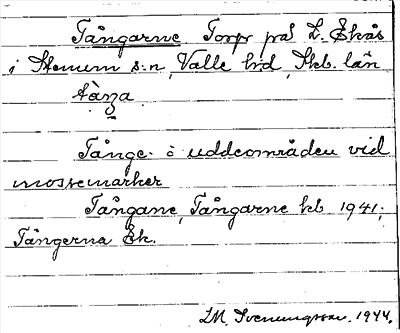 Tångarne Torpr på L. Ekås
i Stenum s:n, Valle hd, Skb. län
tàŋa
Tånge- ö uddeområden vid
mossemarker
Tångane, Tångarne kb 1941;
Tångerna Ek.
LM Svenungsson. 1944.